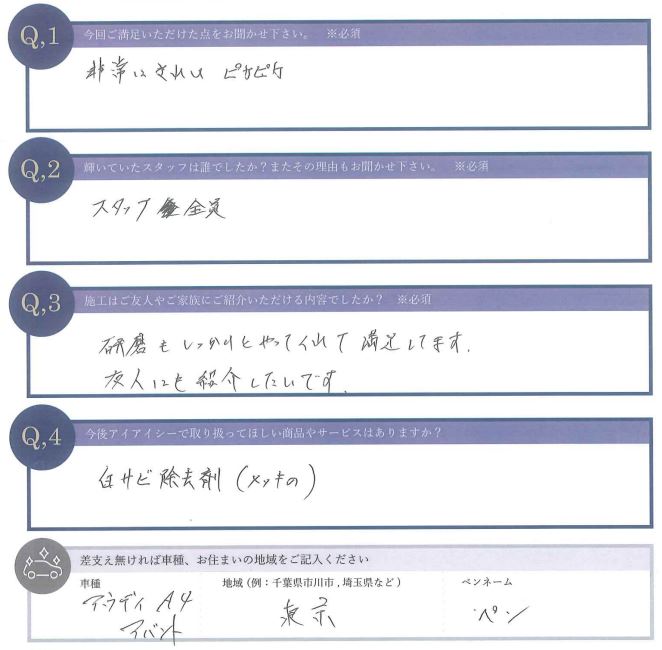 Q,1 今回ご満足いただけた点をお聞かせ下さい。 ※必須
非常にきれい ピカピカ
Q,2 輝いていたスタッフは誰でしたか?またその理由もお聞かせ下さい。 ※必須
スタッフ 全員
Q,3 施工はご友人やご家族にご紹介いただける内容でしたか? ※必須
研磨もしっかりとやってくれて満足してます.
友人にも紹介したいです.
Q,4 今後アイアイシーで取り扱ってほしい商品やサービスはありますか?
白サビ除去剤(メッキの)
差支え無ければ車種、お住まいの地域をご記入ください
車種 地域(例:千葉県市川市,埼玉県など) ペンネーム
アウディ A4 東京 ペン
アバント